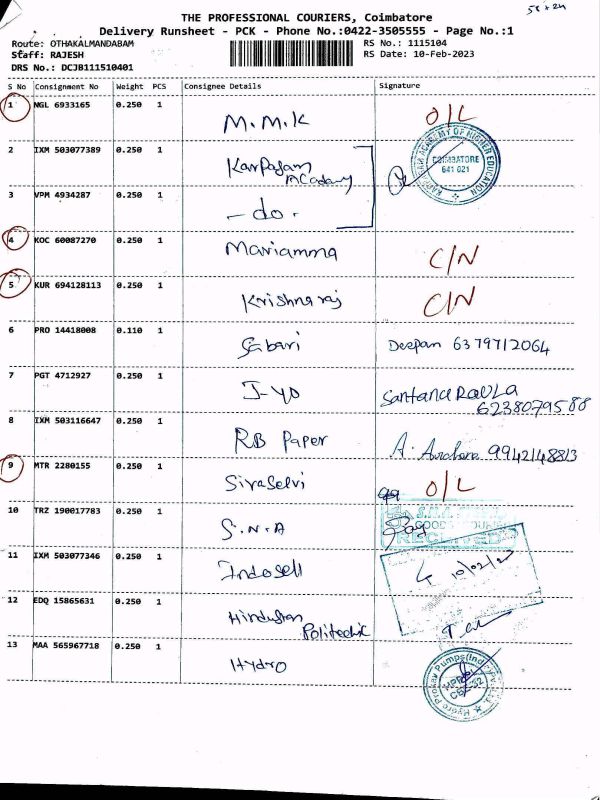 58+24
THE PROFESSIONAL COURIERS, Coimbatore
Delivery Runsheet - PCK - Phone No.:0422-3505555 - Page No.:1
Route: OTHAKALMANDABAM RS No.: 1115104
Staff: RAJESH RS Date: 10-Feb-2023
DRS No.: DCJB111510401
S No Consignment No Weight PCS Consignee Details Signature
1 NGL 6933165 0.250 1 M.M.K O/L
2 IXM 503077389 0.250 1 Karpagam Acadamy
KARPAGAM ACADEMY OF HIGHER EDUCATION COIMBATORE 641 021
3 VPM 4934287 0.250 1 -do-
4 KOC 60087270 0.250 1 Mariamma C/N
5 KUR 694128113 0.250 1 Krishnaraj C/N
6 PRO 14418008 0.110 1 Sabari Deepan 6379712064
7 PGT 4712927 0.250 1 J-40 Santana 6238079588
8 IXM 503116647 0.250 1 RB Paper A. 9942148813
9 MTR 2280155 0.250 1 Sivaselvi O/L
10 TRZ 190017783 0.250 1 S.N.A
RECEIVED
11 IXM 503077346 0.250 1 Indosell 10/02/23
12 EDQ 15865631 0.250 1 Hindustan Politechic
13 MAA 565967718 0.250 1 Hydro
Hydro Prokav Pumps (India)